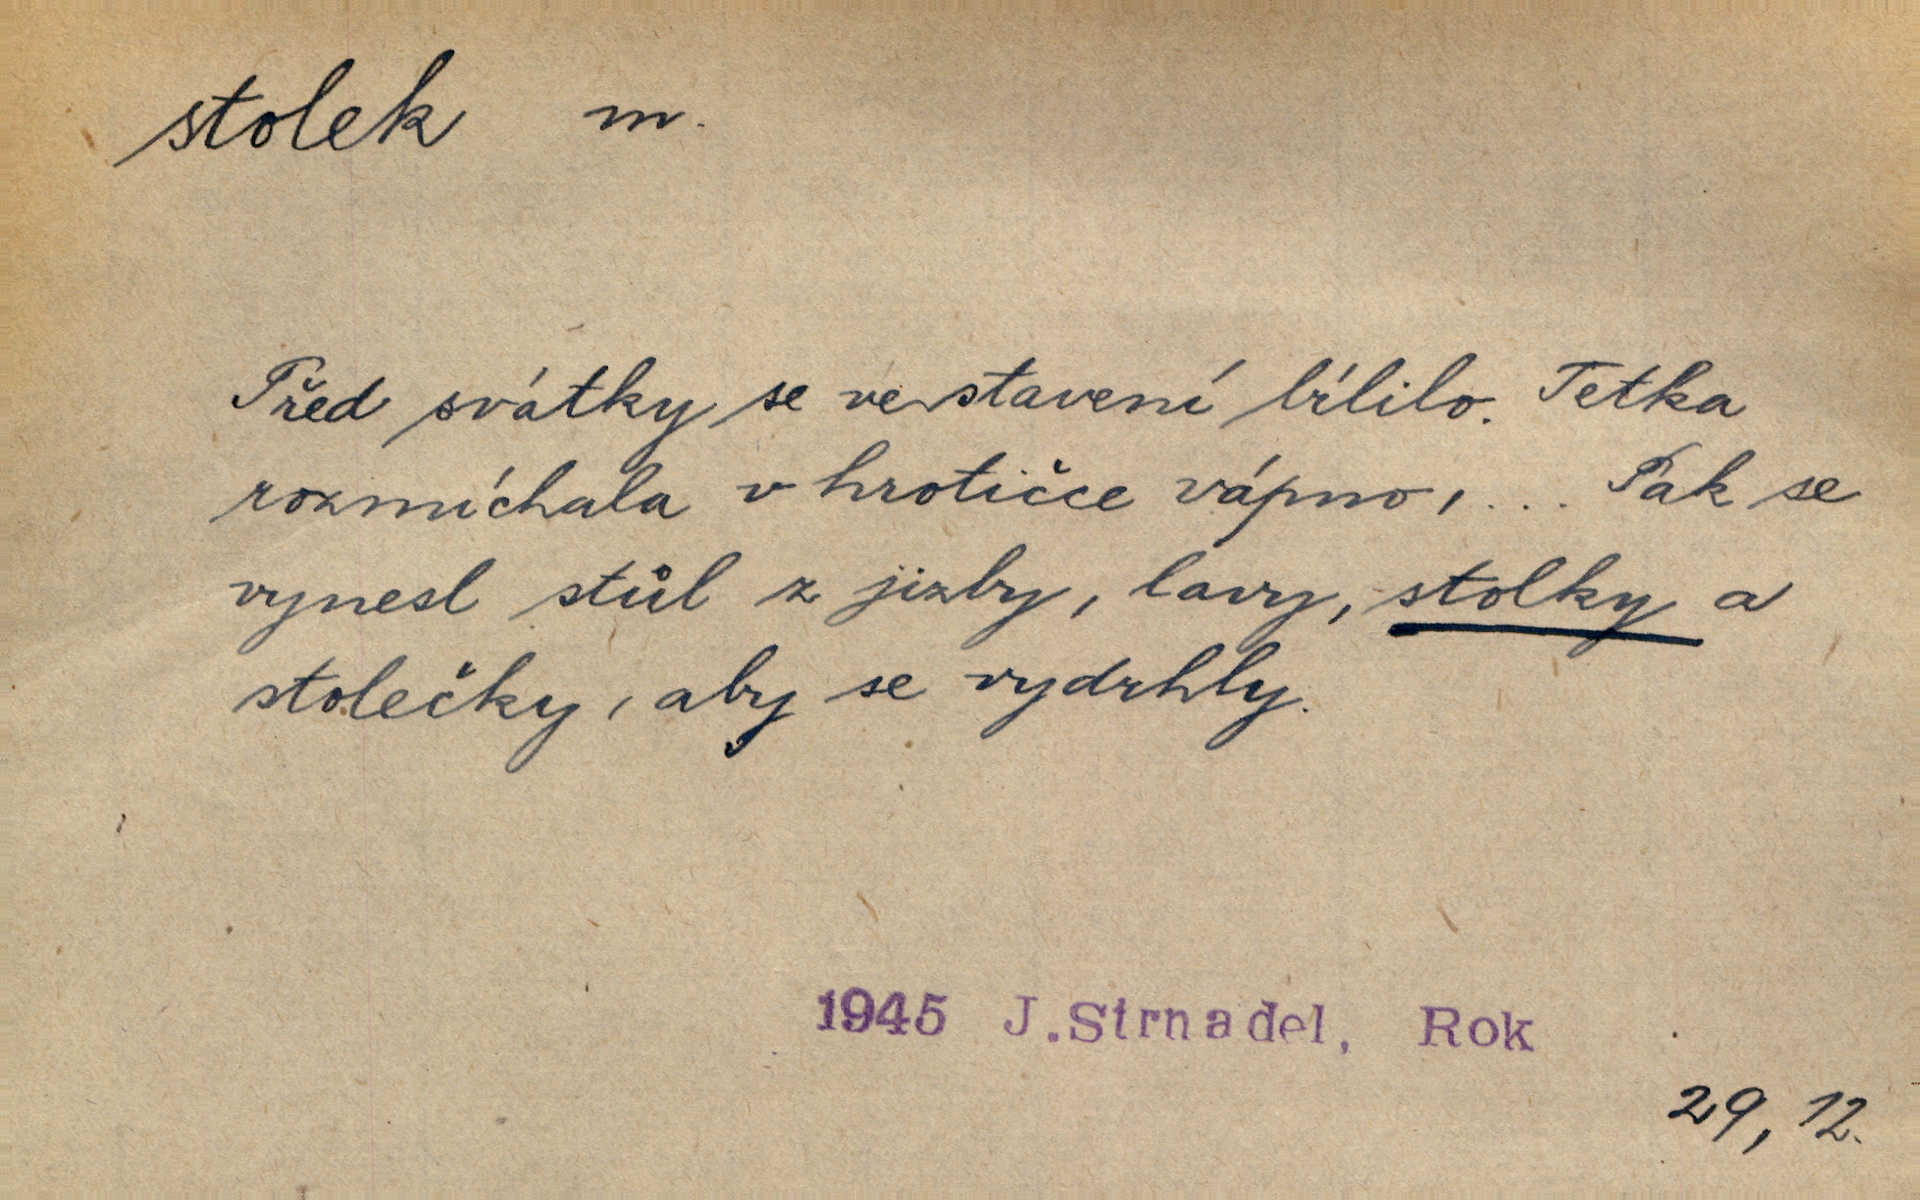 stolek m.
Před svátky se ve stavení bílilo. Tetka
rozmíchala v hrotičce vápno, ... Pak se
vynesl stůl z jizby, lavy, stolky a
stolečky, aby se vydrhly.
1945 J.Strnadel, Rok
29, 12.